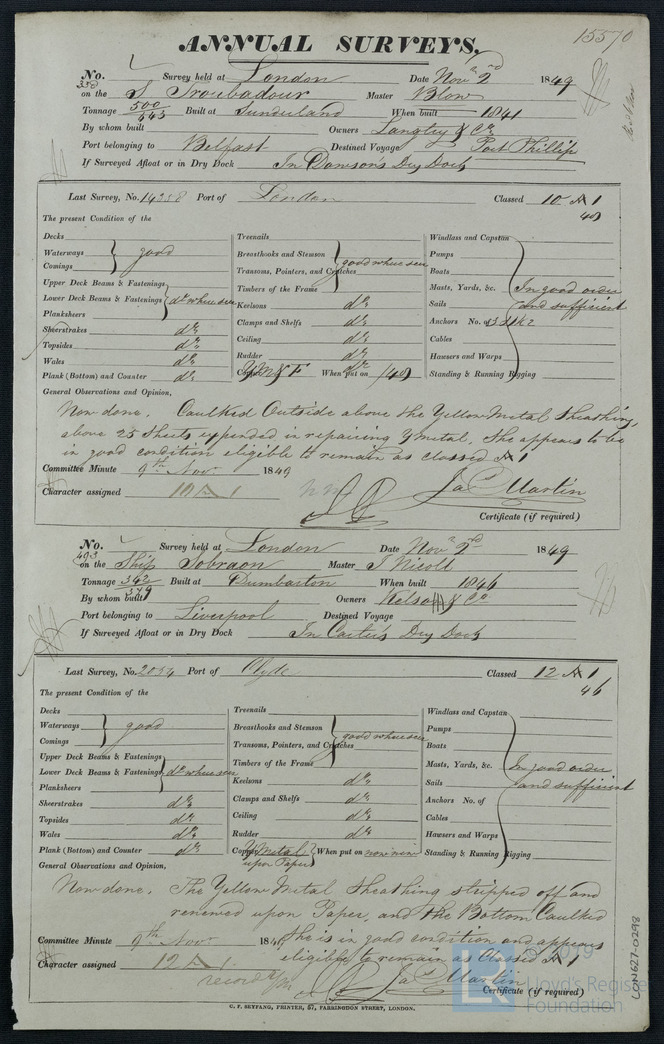 15570
ANNUAL SURVEYS,
No. 350 Survey held at London Date Nov 2nd 1849
on the S Troubadour Master Blow
Tonnage 500/443 Built at Sunderland When built 1841
By whom built Owners Langley & Co
Port belonging to Belfast Destined Voyage Port Phillip
If Surveyed Afloat or in Dry Dock In Dowson's Dry Dock
Last Survey, No. 14238 Port of London Classed 10 A 1
49
The present Condition of the
Decks
Waterways good
Comings
Upper Deck Beams & Fastenings
Lower Deck Beams & Fastenings do where seen
Planksheers
Sheerstrakes do
Topsides do
Wales do
Plank (Bottom) and Counter do
Treenails
Breasthooks and Stemson good where seen
Transoms, Pointers, and Crutches
Timbers of the Frame
Keelsons do
Clamps and Shelfs do
Ceiling do
Rudder do
Copper YM & F When put on /49
Windlass and Capstan
Pumps
Boats
Masts, Yards, &c. In good order
Sails and sufficient
Anchors No. of
Cables
Hawsers and Warps
Standing & Running Rigging
General Observations and Opinion,
Now done. Caulked Outside above the Yellow Metal Sheathing,
above 25 Sheets expended in repairing Y Metal. She appears to be
in good condition eligible to remain as classed A 1
Committee Minute 9th Nov 1849
Character assigned 10 A 1
Jas Martin
Certificate (if required)
No. 493 Survey held at London Date Nov 2nd 1849
on the Ship Sobraon Master J Nicoll
Tonnage 342/379 Built at Dumbarton When built 1846
By whom built Owners & Co
Port belonging to Liverpool Destined Voyage
If Surveyed Afloat or in Dry Dock In Carter's Dry Dock
Last Survey, No. 2054 Port of Clyde Classed 12 A 1
46
The present Condition of the
Decks
Waterways good
Comings
Upper Deck Beams & Fastenings
Lower Deck Beams & Fastenings do where seen
Planksheers
Sheerstrakes do
Topsides do
Wales do
Plank (Bottom) and Counter do
Treenails
Breasthooks and Stemson good where seen
Transoms, Pointers, and Crutches
Timbers of the Frame
Keelsons do
Clamps and Shelfs do
Ceiling do
Rudder do
Copper Y Metal upon Paper When put on now new
Windlass and Capstan
Pumps
Boats
Masts, Yards, &c. In good order
Sails and sufficient
Anchors No. of
Cables
Hawsers and Warps
Standing & Running Rigging
General Observations and Opinion,
Now done. The Yellow Metal Sheathing stripped off and
renewed upon Paper, and the Bottom Caulked
She is in good condition and appears
eligible to remain as Classed A 1
Committee Minute 9th Nov 1849
Character assigned 12 A 1
Jas Martin
Certificate (if required)
C. F. SEYFANG, PRINTER, 57, FARRINGDON STREET, LONDON.
LON627-0298
© 2019
LR
Lloyd's Register
Foundation